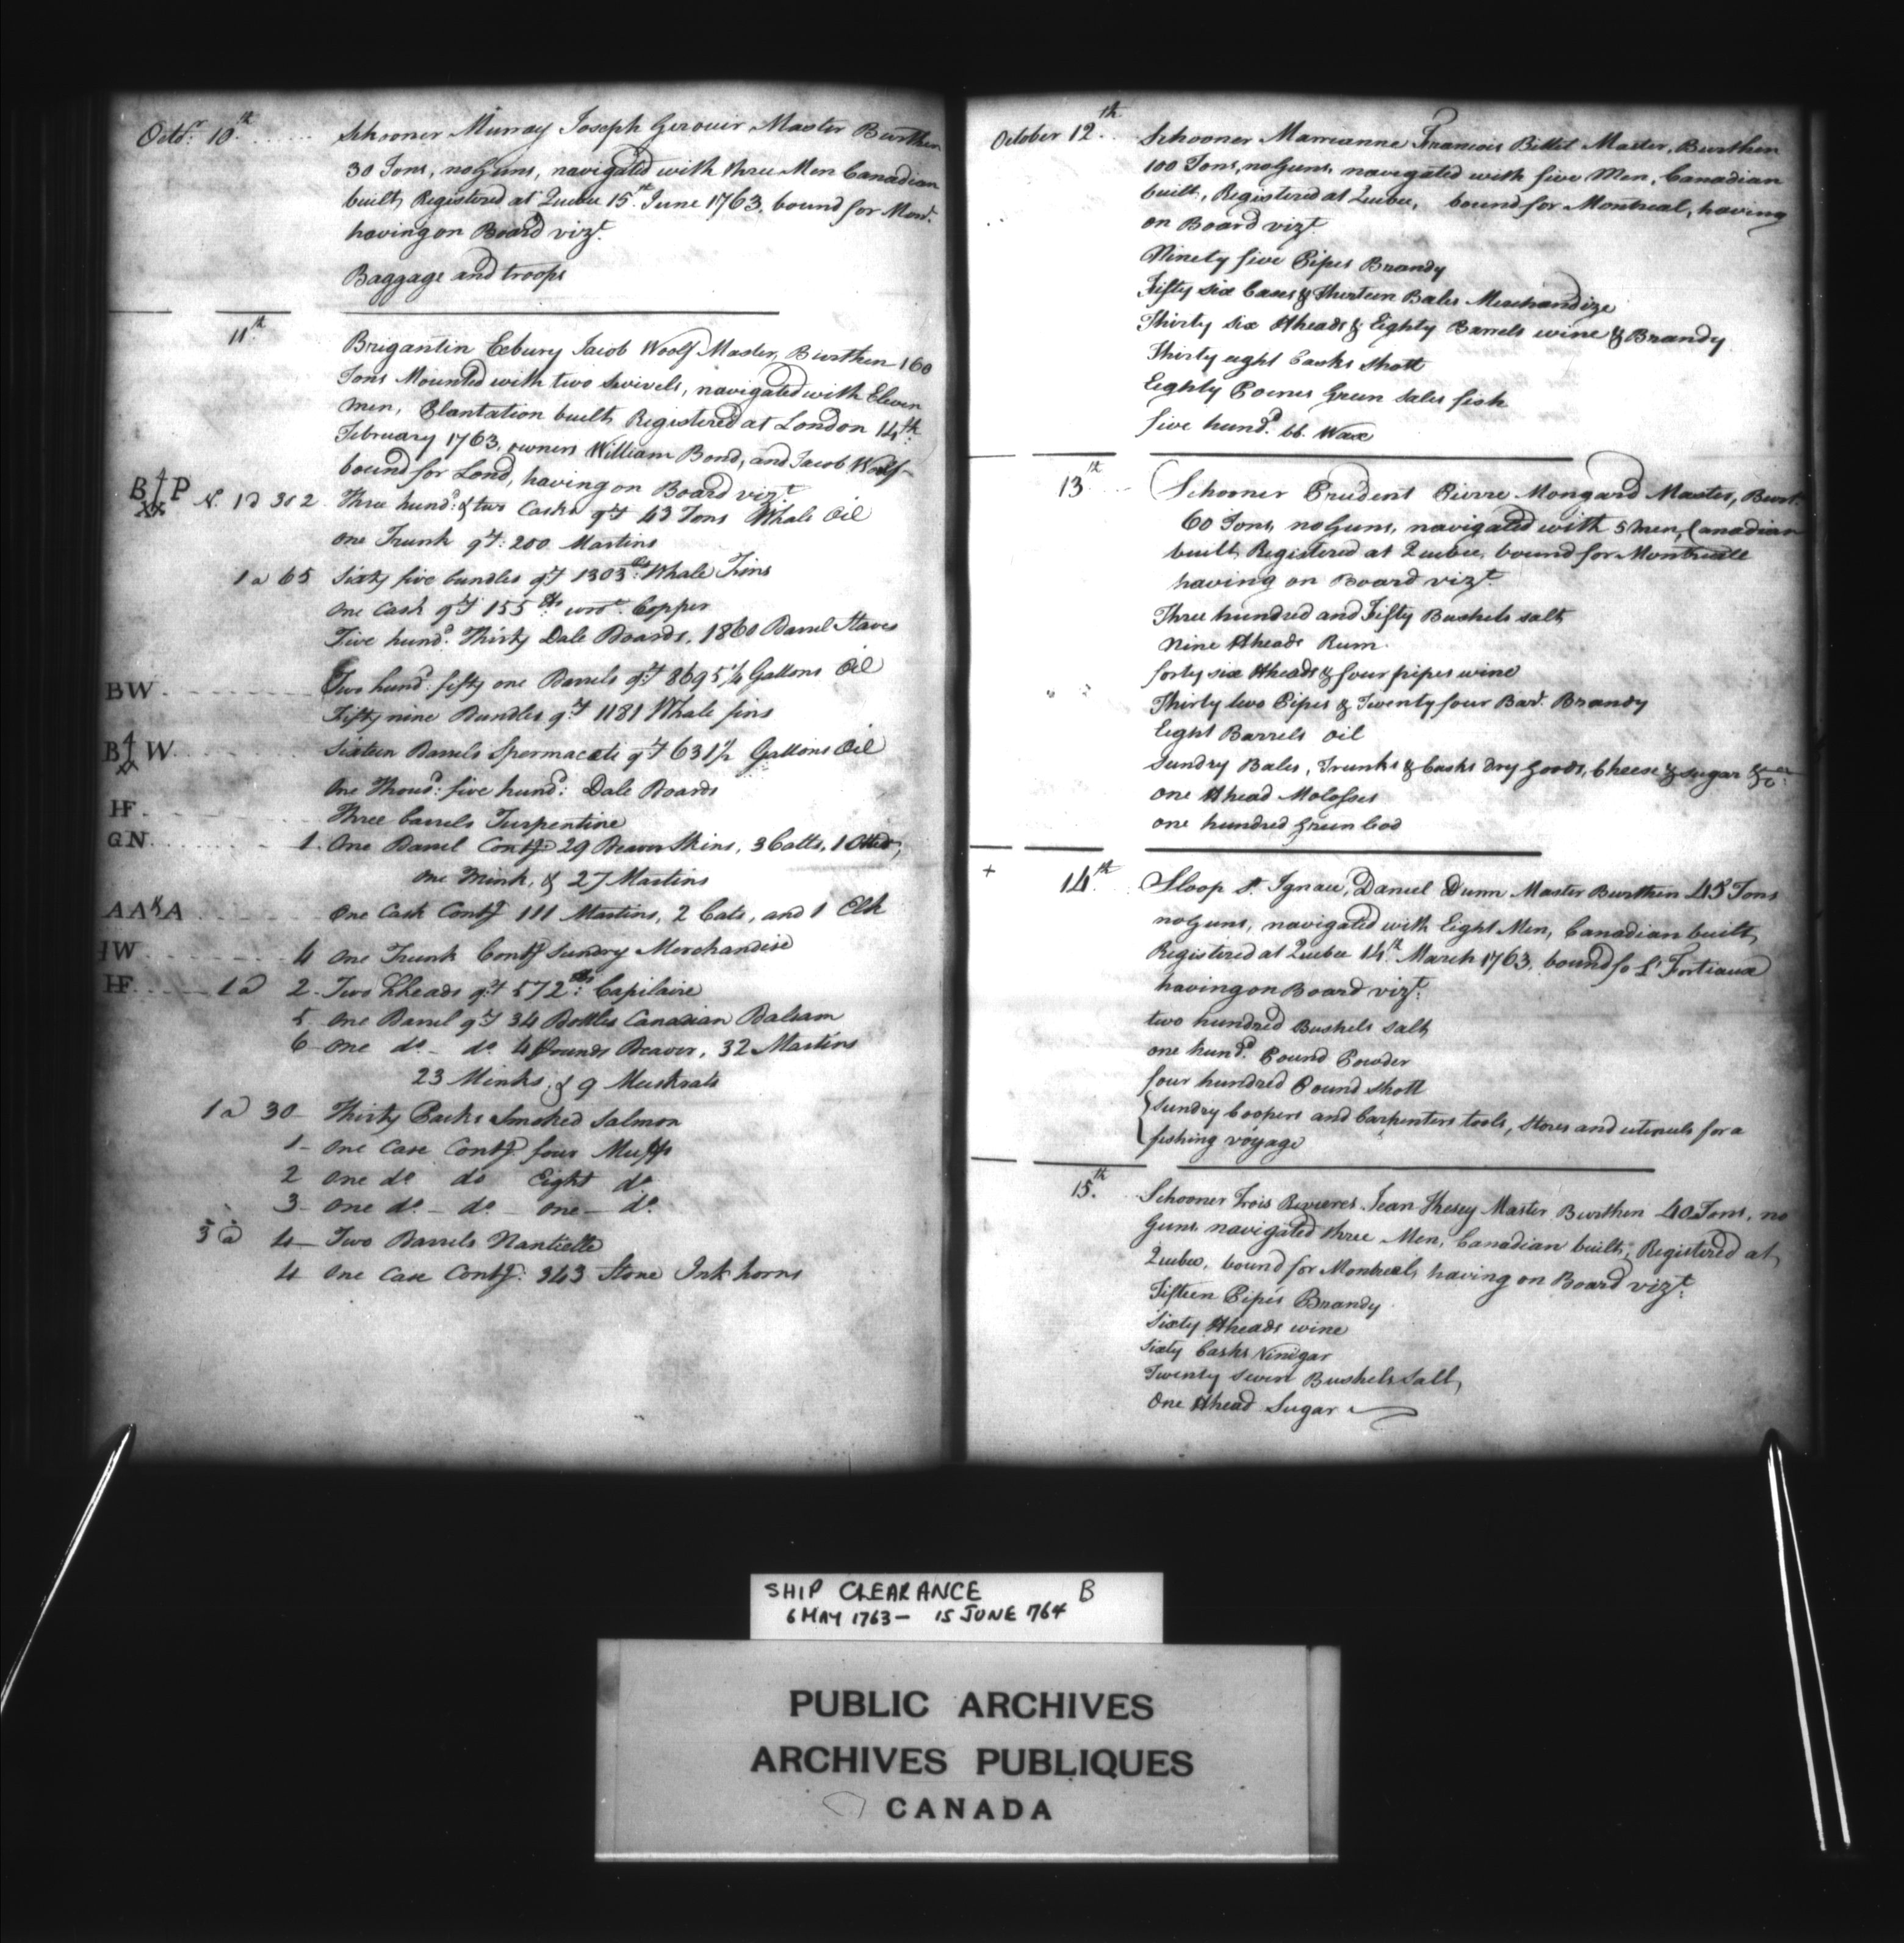 Octor. 10th. Schooner Murray Joseph Gerouir Master Burthen
30 Tons, no Guns, navigated with three Men Canadian
built, Registered at Quebec 15th. June 1763. bound for Mont.
having on Board vizt.
Baggage and troops
11th. Brigantin Exbury Jacob Woolf Master, Burthen 160
Tons Mounted with two swivels, navigated with Eleven
men, Plantation built, Registered at London 14th.
February 1763, owners William Bond, and Jacob Woolf
bound for Lond, having on Board vizt.
B P N. 1 a 302 Three hund: & two Casks qt. 43 Tons Whale Oil
one Trunk qt: 200 Martins
1 a 65 Sixty five bundles qt 1303 lb: Whale Fins
One Cask qt 155 lb wrot. Copper
Five hund. Thirty Dale Boards, 1860 Barrel Staves
BW Two hund: fifty one Barrels qt 8695 1/4 Gallons Oil
Fifty nine Bundles qt 1181 Whale fins
B W Sixteen Barrels Spermaceti qt 631 1/2 Gallons Oil
One Thoud: five hund: Dale Boards
HF Three barrels Turpentine
GN 1. One Barrel Contg 29 Beaver Skins, 3 Catts, 1 Otter,
one Mink, & 27 Martins
AA&A One Cask Contg 111 Martins, 2 Cats, and 1 Elk
IW 4 One Trunk Contg Sundry Merchandise
HF 1 a 2. Two Hheads qt 572 lb: Capilaire
5 One Barrel qt 34 Bottles Canadian Balsam
6 One do. do. 4 Pounds Beaver, 32 Martins
23 Minks, & 9 Muskrats
1 a 30 Thirty Packs Smoked Salmon
1 One Case Contg four Muffs
2 One do do Eight do.
3 One do. do. one do.
3 a 4 Two Barrels Nantielle
4 One Case Contg: 343 Stone Ink horns
October 12th. Schooner Marrianne Francois Billit Master, Burthen
100 Tons, no Guns, navigated with five Men, Canadian
built, Registered at Quebec, bound for Montreal, having
on Board vizt.
Ninety five Pipes Brandy
Fifty six Cases & Thirteen Bales Merchandize
Thirty six Hheads & Eighty Barrels wine & Brandy
Thirty eight Casks Shott
Eighty Green Sales fish
five hund. lb. Wax
13th Schooner Prudent Pierre Mongard Master, Burt.
60 Tons, no Guns, navigated with 5 men, Canadian
built, Registered at Quebec, bound for Montreall
having on Board vizt.
Three hundred and Fifty Bushels salt
Nine Hheads Rum.
forty six Hheads & four pipes wine
Thirty two Pipes & Twenty four Barl. Brandy
Eight Barrels oil
Sundry Bales, Trunks & Casks dry Goods, Cheese & sugar &c
One Hhead Molosses
one hundred green Cod
+ 14th. Sloop St. Ignace, Daniel Dunn Master Burthen 45 Tons
no Guns, navigated with Eight Men, Canadian built,
Registered at Quebec 14th. March 1763, bound fo
having on Board vizt:
two hundred Bushels salt
one hund. Pound Powder
four hundred Pound Shott
Sundry Coopers and Carpenters tools, Stores and utensils for a
fishing voyage
15th. Schooner Trois Rivieres Jean Thesey Master Burthen 40 Tons, no
Guns navigated three Men, Canadian built, Registered at
Quebec, bound for Montreal, having on Board vizt:
Fifteen Pipes Brandy
Sixty Hheads wine
Sixty Casks Vinigar
Twenty seven Bushels Salt,
One Hhead Sugar
SHIP CLEARANCE B
6 MAY 1763 — 15 JUNE 764
PUBLIC ARCHIVES
ARCHIVES PUBLIQUES
CANADA